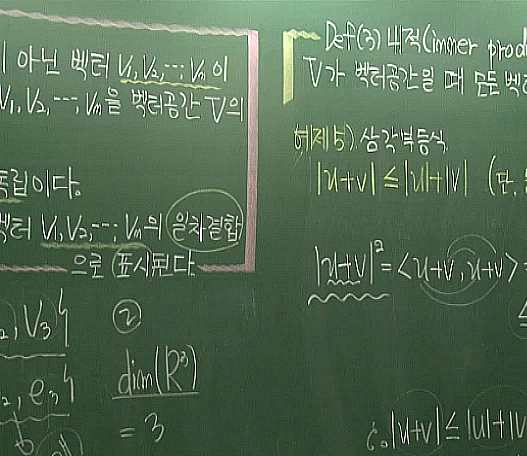 아닌 벡터 V₁, V₂, ⋯, Vₙ이
V₁, V₂, ⋯, Vₙ을 벡터공간 V의
독립이다.
벡터 V₁, V₂, ⋯, Vₙ의 일차결합
으로 표시된다.
₂, V₃}
₂, e₃}
②
dim(R³)
= 3
Def(3) 내적(inner prod
V가 벡터공간일 때 모든 벡
예제5) 삼각부등식
|u+v| ≤ |u|+|v| (단,
|u+v|² = <u+v, u+v>
≤
∴ |u+v| ≤ |u|+|v|